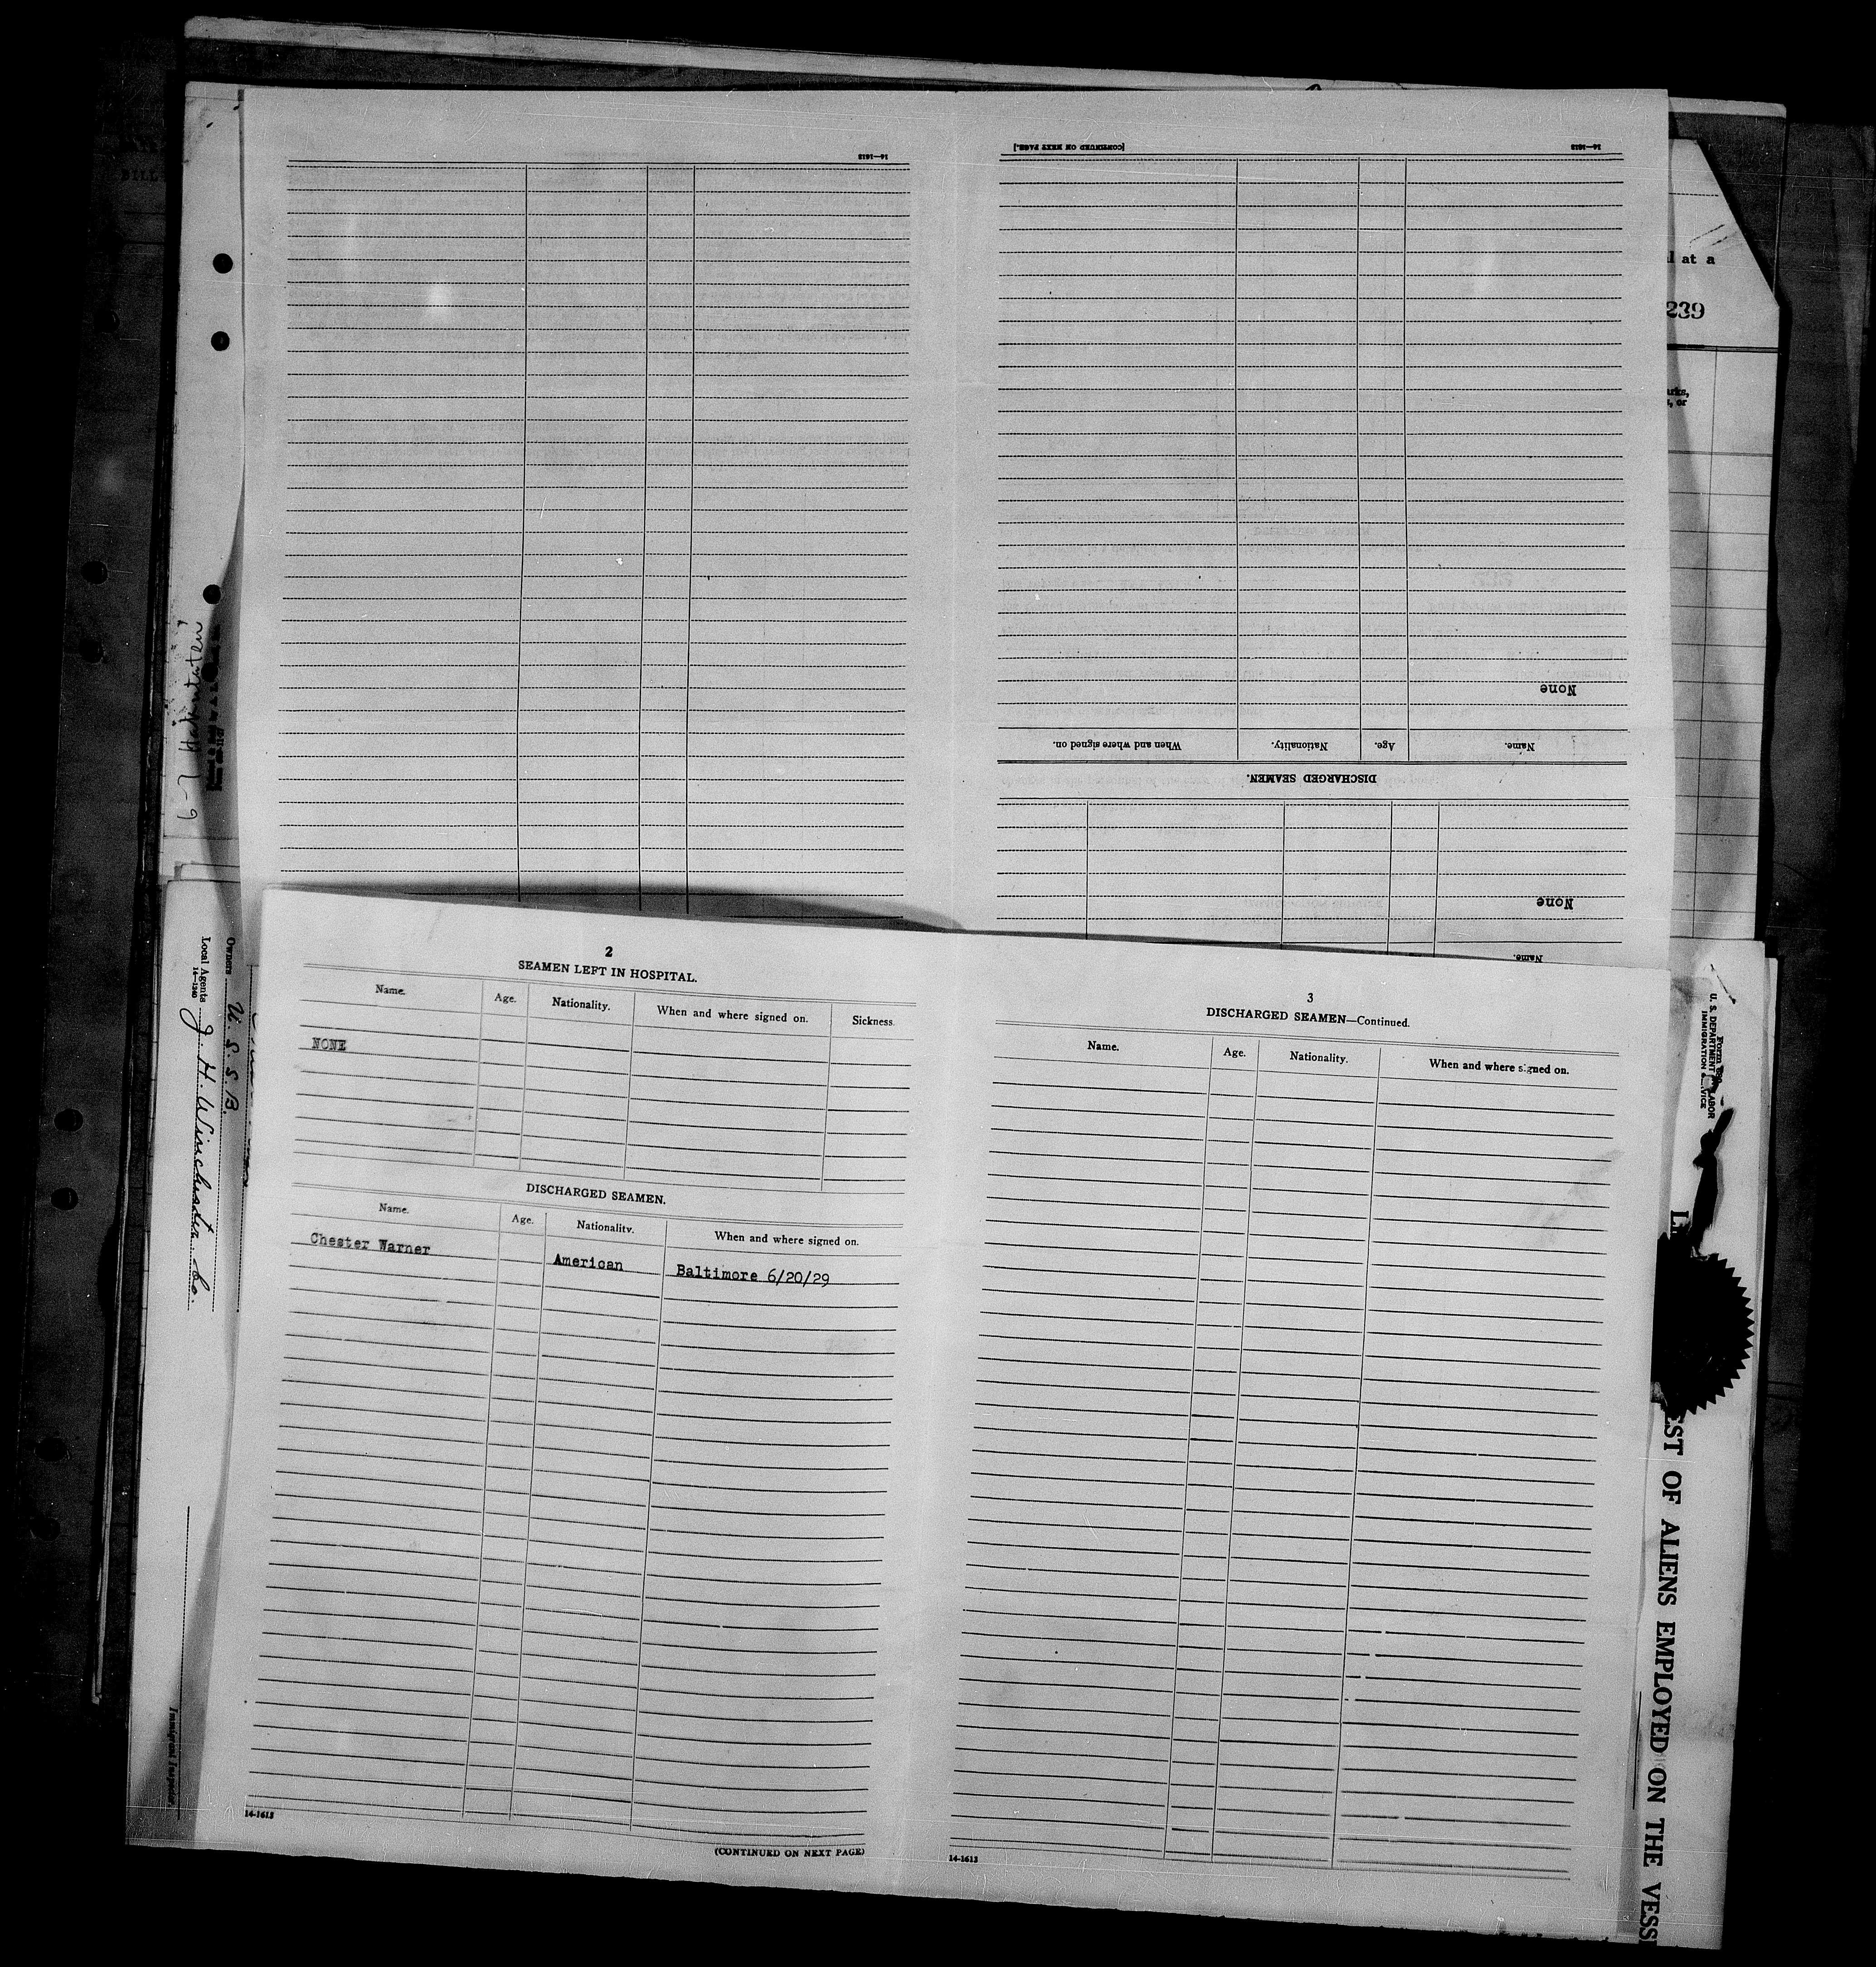 14—1613
[CONTINUED ON NEXT PAGE.]
14—1613
None
Name.
Age.
Nationality.
When and where signed on.
DISCHARGED SEAMEN.
None
Name.
l at a
239
arks,
, or
6-7
Owners U. S. S. B.
Local Agents J. H. Winchester Co.
14—1240
Immigrant Inspector.
2
SEAMEN LEFT IN HOSPITAL.
Name.
Age.
Nationality.
When and where signed on.
Sickness.
NONE
DISCHARGED SEAMEN.
Name.
Age.
Nationality.
When and where signed on.
Chester Warner
American
Baltimore 6/20/29
14-1613
(CONTINUED ON NEXT PAGE)
3
DISCHARGED SEAMEN—Continued.
Name.
Age.
Nationality.
When and where signed on.
14-1613
Form
U. S. DEPARTMENT LABOR
IMMIGRATION
EST OF ALIENS EMPLOYED ON THE VESS